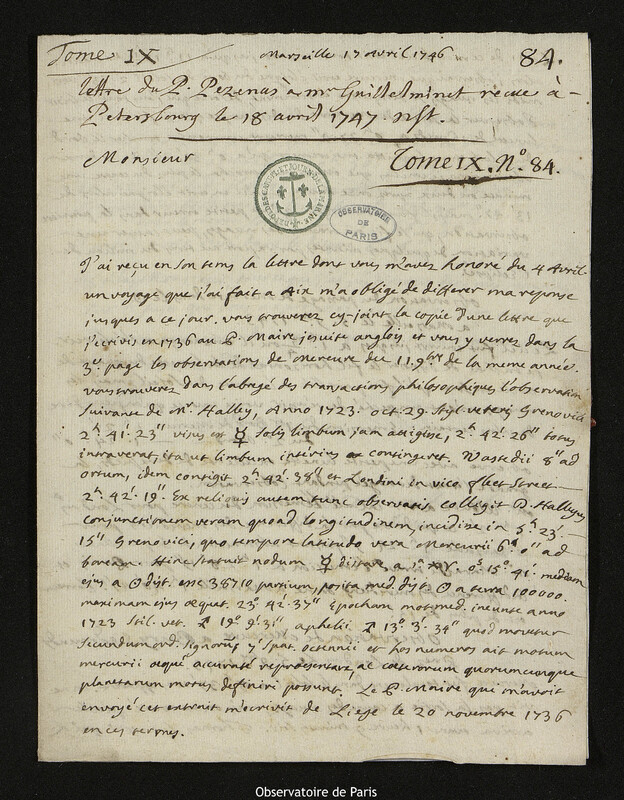 Tome IX
Marseille 17 avril 1746
84.
lettre du P. Pezenas à mr Guillelminet recue à -
Petersbourg le 18 avril 1747. nst.
Monsieur
Tome IX. No. 84.
OBSERVATOIRE
DE
PARIS
J'ai reçu en son tems la lettre dont vous m'avez honoré du 4 Avril
un voyage que j'ai fait a Aix m'a obligé de differer ma reponse
jusques a ce jour. vous trouverez cy-joint la copie d'une lettre que
j'ecrivis en 1736 au P. Maire jesuite anglois et vous y verrez dans la
3e. page les observations de mercure du 11. 9bre de la meme année.
vous trouverez dans l'abregé des transactions philosophiques l'observation
suivante de Mr. Halley, Anno 1723. oct. 29. Styl. veteri Grenovici
2h. 41'. 23" visus est ☿ solis limbum jam attigisse, 2h. 42'. 26" totus
intraverat, ita ut limbum interius contingeret. Wanstedii 8" ad
ortum, idem contigit 2h. 42'. 38" et Londini in vico fleet street
2h. 42'. 19". Ex reliquis autem tunc observatis collegit D. Halleyus
conjunctionem veram quoad longitudinem, incidisse in 5h. 23'.
15" Grenovici, quo tempore latitudo vera Mercurii 6'. 0" ad
boream. Hinc statuit nodum ☿ distare a 1a * ♈ 0s. 15°. 41'. mediam
ejus a ☉ dist. esse 38710 partium, posita med. dist ☉ a terra 100000.
maximam ejus æquat. 23°. 42'. 37" Epocham mot. med. ineunte anno
1723 Stil. vet. 19° 9'. 31" aphelii ♐ 13°. 3'. 34" quod movetur
secundum ord. signorum spat. octennii et hos numeros ait motum
mercurii æque accurate repræsentare, ac cæterorum quorumcunque
planetarum motus definiri possunt. Le P. Maire qui m'avoit
envoyé cet extrait m'ecrivit de Liege le 20 novembre 1736
en ces termes.
Observatoire de Paris